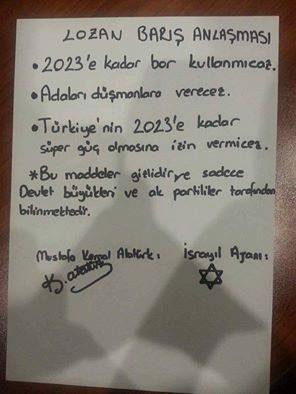 LOZAN BARIŞ ANLAŞMASI
• 2023'e kadar bor kullanmıcaz.
• Adaları düşmanlara verecez.
• Türkiye'nin 2023'e kadar
süper güç olmasına izin vermicez.
* Bu maddeler gizlidir ve sadece
Devlet büyükleri ve ak partililer tarafından
bilinmektedir.
Mustafa Kemal Atatürk:
İsrayil Ajanı:
K. Atatürk